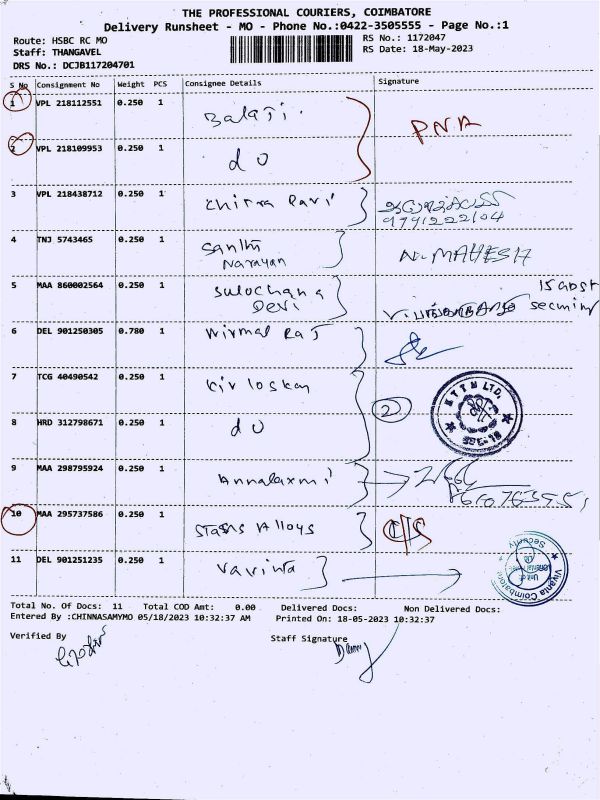 THE PROFESSIONAL COURIERS, COIMBATORE
Delivery Runsheet - MO - Phone No.:0422-3505555 - Page No.:1
Route: HSBC RC MO
RS No.: 1172047
Staff: THANGAVEL
RS Date: 18-May-2023
DRS No.: DCJB117204701
S No Consignment No Weight PCS Consignee Details Signature
1 VPL 218112551 0.250 1 Balaji
PNA
2 VPL 218109953 0.250 1 do
3 VPL 218438712 0.250 1 Chitra Ravi
9791222104
4 TNJ 5743465 0.250 1 Santhi
Narayan
N. MAHESH
5 MAA 860002564 0.250 1 Sulochana
Devi
6 DEL 901250305 0.780 1 Nirmal Raj
7 TCG 40490542 0.250 1 Kirloskar
2
LTD.
8 HRD 312798671 0.250 1 do
9 MAA 298795924 0.250 1 Annalaxmi
10 MAA 295737586 0.250 1 Alloys
C/S
11 DEL 901251235 0.250 1
Vivanta Coimbatore
Security
Total No. Of Docs: 11 Total COD Amt: 0.00 Delivered Docs: Non Delivered Docs:
Entered By :CHINNASAMYMO 05/18/2023 10:32:37 AM Printed On: 18-05-2023 10:32:37
Verified By
Staff Signature